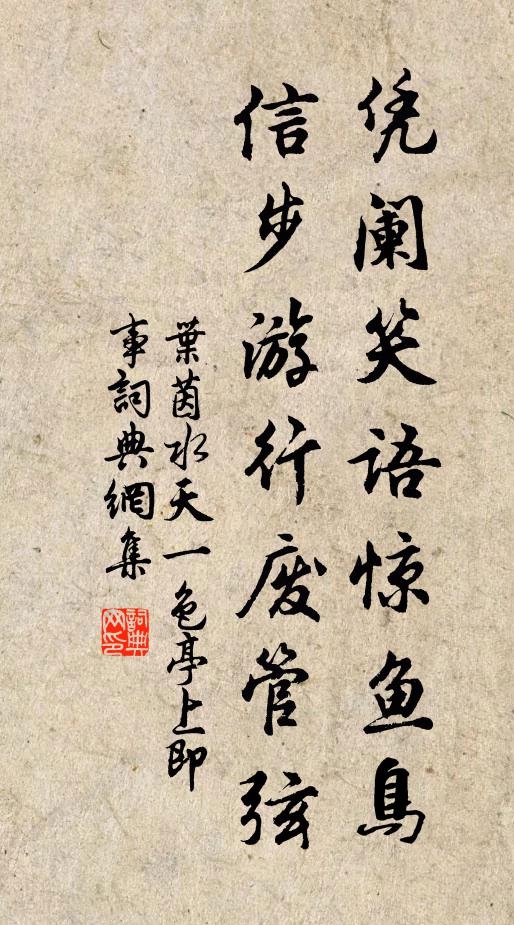 凭阑笑语惊鱼鸟
信步游行废管弦
葉茵水天一色亭上即
事詞典網集
詞典
网印